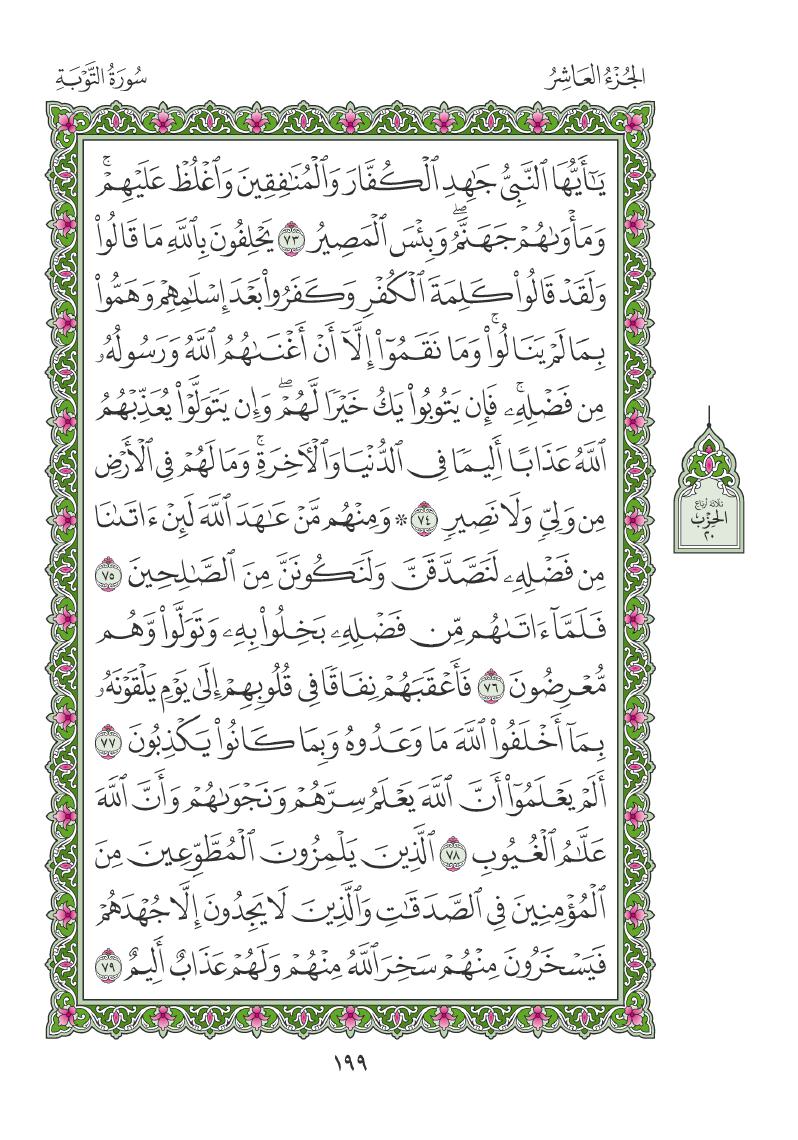 الجُزْءُ العَاشِرُ
سُورَةُ التَّوْبَةِ
يَٰٓأَيُّهَا ٱلنَّبِيُّ جَٰهِدِ ٱلْكُفَّارَ وَٱلْمُنَٰفِقِينَ وَٱغْلُظْ عَلَيْهِمْۚ
وَمَأْوَىٰهُمْ جَهَنَّمُۖ وَبِئْسَ ٱلْمَصِيرُ ٧٣ يَحْلِفُونَ بِٱللَّهِ مَا قَالُوا۟
وَلَقَدْ قَالُوا۟ كَلِمَةَ ٱلْكُفْرِ وَكَفَرُوا۟ بَعْدَ إِسْلَٰمِهِمْ وَهَمُّوا۟
بِمَا لَمْ يَنَالُوا۟ۚ وَمَا نَقَمُوٓا۟ إِلَّآ أَنْ أَغْنَىٰهُمُ ٱللَّهُ وَرَسُولُهُۥ
مِن فَضْلِهِۦۚ فَإِن يَتُوبُوا۟ يَكُ خَيْرًا لَّهُمْۖ وَإِن يَتَوَلَّوْا۟ يُعَذِّبْهُمُ
ٱللَّهُ عَذَابًا أَلِيمًا فِى ٱلدُّنْيَا وَٱلْءَاخِرَةِۚ وَمَا لَهُمْ فِى ٱلْأَرْضِ
مِن وَلِىٍّ وَلَا نَصِيرٍ ٧٤ * وَمِنْهُم مَّنْ عَٰهَدَ ٱللَّهَ لَئِنْ ءَاتَىٰنَا
مِن فَضْلِهِۦ لَنَصَّدَّقَنَّ وَلَنَكُونَنَّ مِنَ ٱلصَّٰلِحِينَ ٧٥
فَلَمَّآ ءَاتَىٰهُم مِّن فَضْلِهِۦ بَخِلُوا۟ بِهِۦ وَتَوَلَّوا۟ وَّهُم
مُّعْرِضُونَ ٧٦ فَأَعْقَبَهُمْ نِفَاقًا فِى قُلُوبِهِمْ إِلَىٰ يَوْمِ يَلْقَوْنَهُۥ
بِمَآ أَخْلَفُوا۟ ٱللَّهَ مَا وَعَدُوهُ وَبِمَا كَانُوا۟ يَكْذِبُونَ ٧٧
أَلَمْ يَعْلَمُوٓا۟ أَنَّ ٱللَّهَ يَعْلَمُ سِرَّهُمْ وَنَجْوَىٰهُمْ وَأَنَّ ٱللَّهَ
عَلَّٰمُ ٱلْغُيُوبِ ٧٨ ٱلَّذِينَ يَلْمِزُونَ ٱلْمُطَّوِّعِينَ مِنَ
ٱلْمُؤْمِنِينَ فِى ٱلصَّدَقَٰتِ وَٱلَّذِينَ لَا يَجِدُونَ إِلَّا جُهْدَهُمْ
فَيَسْخَرُونَ مِنْهُمْ سَخِرَ ٱللَّهُ مِنْهُمْ وَلَهُمْ عَذَابٌ أَلِيمٌ ٧٩
ثلاثة أرباع
الحِزْب
٢٠
١٩٩